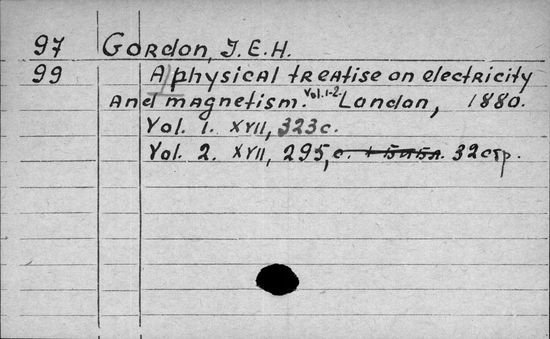 97 Gordon, J.E.H.
99 A physical treatise on electricity
and magnetism. Vol. 1-2. London, 1880.
Vol. 1. XVII, 323 c.
Vol. 2. XVII, 295, c. 32 стр.